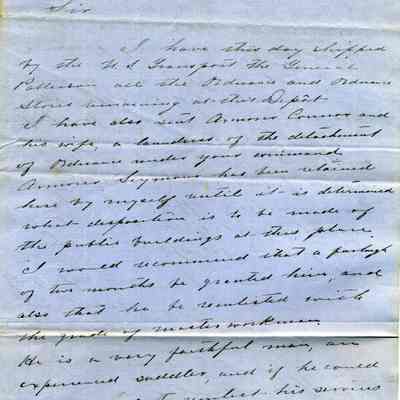 Sir
I have this day shipped
by the U.S. Transport the General
Patterson all the Ordnance and Ordnance
Stores remaining at this Depôt
I have also sent Armorer Connor and
his wife, a laundress of the detachment
of Ordnance under your command
Armorer Seymour has been retained
here by myself until it is determined
what disposition is to be made of
the public buildings at this place.
I would recommend that a furlough
of two months be granted him, and
also that he be reenlisted with
the grade of master workman.
He is a very faithful man, an
experienced saddler, and if he could
his services